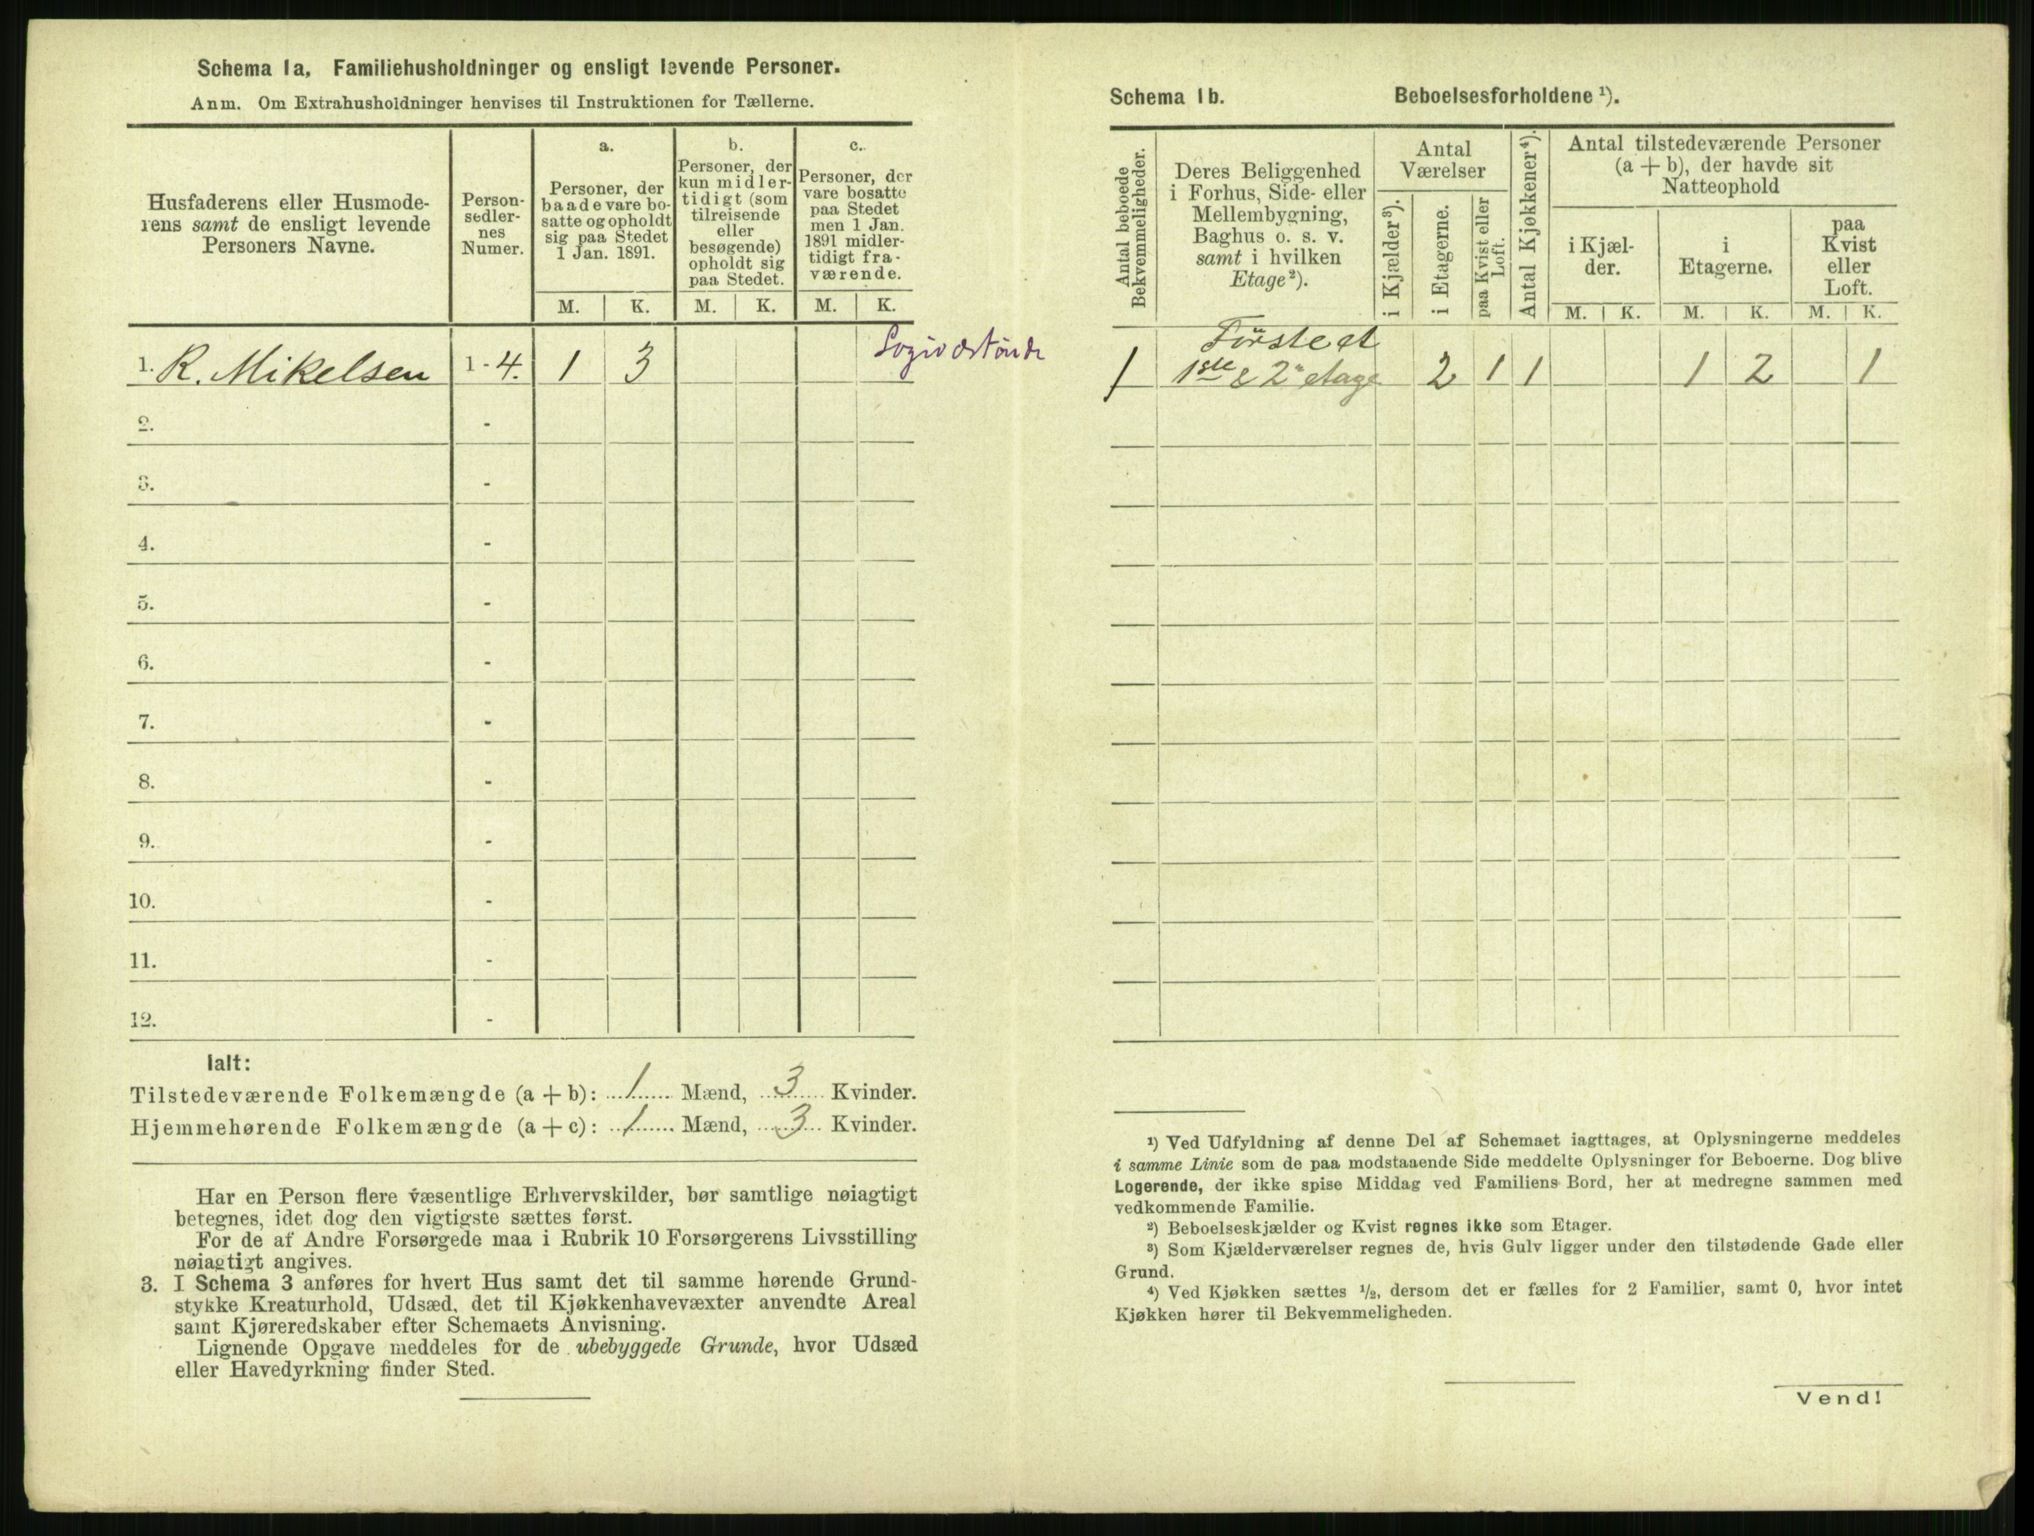 Schema 1a. Familiehusholdninger og ensligt levende Personer.
Anm. Om Extrahusholdninger henvises til Instruktionen for Tællerne.
Husfaderens eller Husmoderens samt de ensligt levende Personers Navne.
Personsedlernes Numer.
a.
Personer, der baade vare bosatte og opholdt sig paa Stedet 1 Jan. 1891.
b.
Personer, der kun midlertidigt (som tilreisende eller besøgende) opholdt sig paa Stedet.
c.
Personer, der vare bosatte paa Stedet men 1 Jan. 1891 midlertidigt fraværende.
M. K. M. K. M. K.
1. R. Mikelsen 1-4. 1 3
2. -
3. -
4. -
5. -
6. -
7. -
8. -
9. -
10. -
11. -
12. -
Ialt:
Tilstedeværende Folkemængde (a + b): 1 Mænd, 3 Kvinder.
Hjemmehørende Folkemængde (a + c): 1 Mænd, 3 Kvinder.
Har en Person flere væsentlige Erhvervskilder, bør samtlige nøiagtigt
betegnes, idet dog den vigtigste sættes først.
For de af Andre Forsørgede maa i Rubrik 10 Forsørgerens Livsstilling
nøiagtigt angives.
3. I Schema 3 anføres for hvert Hus samt det til samme hørende Grund-
stykke Kreaturhold, Udsæd, det til Kjøkkenhavevæxter anvendte Areal
samt Kjøreredskaber efter Schemaets Anvisning.
Lignende Opgave meddeles for de ubebyggede Grunde, hvor Udsæd
eller Havedyrkning finder Sted.
Schema 1b. Beboelsesforholdene ¹).
Antal beboede Bekvemmeligheder.
Deres Beliggenhed i Forhus, Side- eller Mellembygning, Baghus o. s. v. samt i hvilken Etage²).
Antal Værelser
i Kjælder³).
i Etagerne.
paa Kvist eller Loft.
Antal Kjøkkener⁴).
Antal tilstedeværende Personer (a + b), der havde sit Natteophold
i Kjælder.
i Etagerne.
paa Kvist eller Loft.
M. K. M. K. M. K.
1 1ste & 2" etage 2 1 1 1 2 1
¹) Ved Udfyldning af denne Del af Schemaet iagttages, at Oplysningerne meddeles
i samme Linie som de paa modstaaende Side meddelte Oplysninger for Beboerne. Dog blive
Logerende, der ikke spise Middag ved Familiens Bord, her at medregne sammen med
vedkommende Familie.
²) Beboelseskjælder og Kvist regnes ikke som Etager.
³) Som Kjælderværelser regnes de, hvis Gulv ligger under den tilstødende Gade eller
Grund.
⁴) Ved Kjøkken sættes ½, dersom det er fælles for 2 Familier, samt 0, hvor intet
Kjøkken hører til Bekvemmeligheden.
Vend!